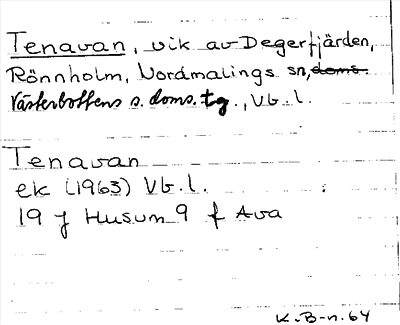 Tenavan, vik av Degerfjärden,
Rönnholm, Nordmalings sn, doms.
Västerbottens s. doms. tg., Vb. l.
Tenavan
ek (1963) Vb. l.
19 J Husum 9 f Ava
K. B-n. 64